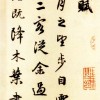 賦
月之望步自雪
二客從余過
既降木葉盡